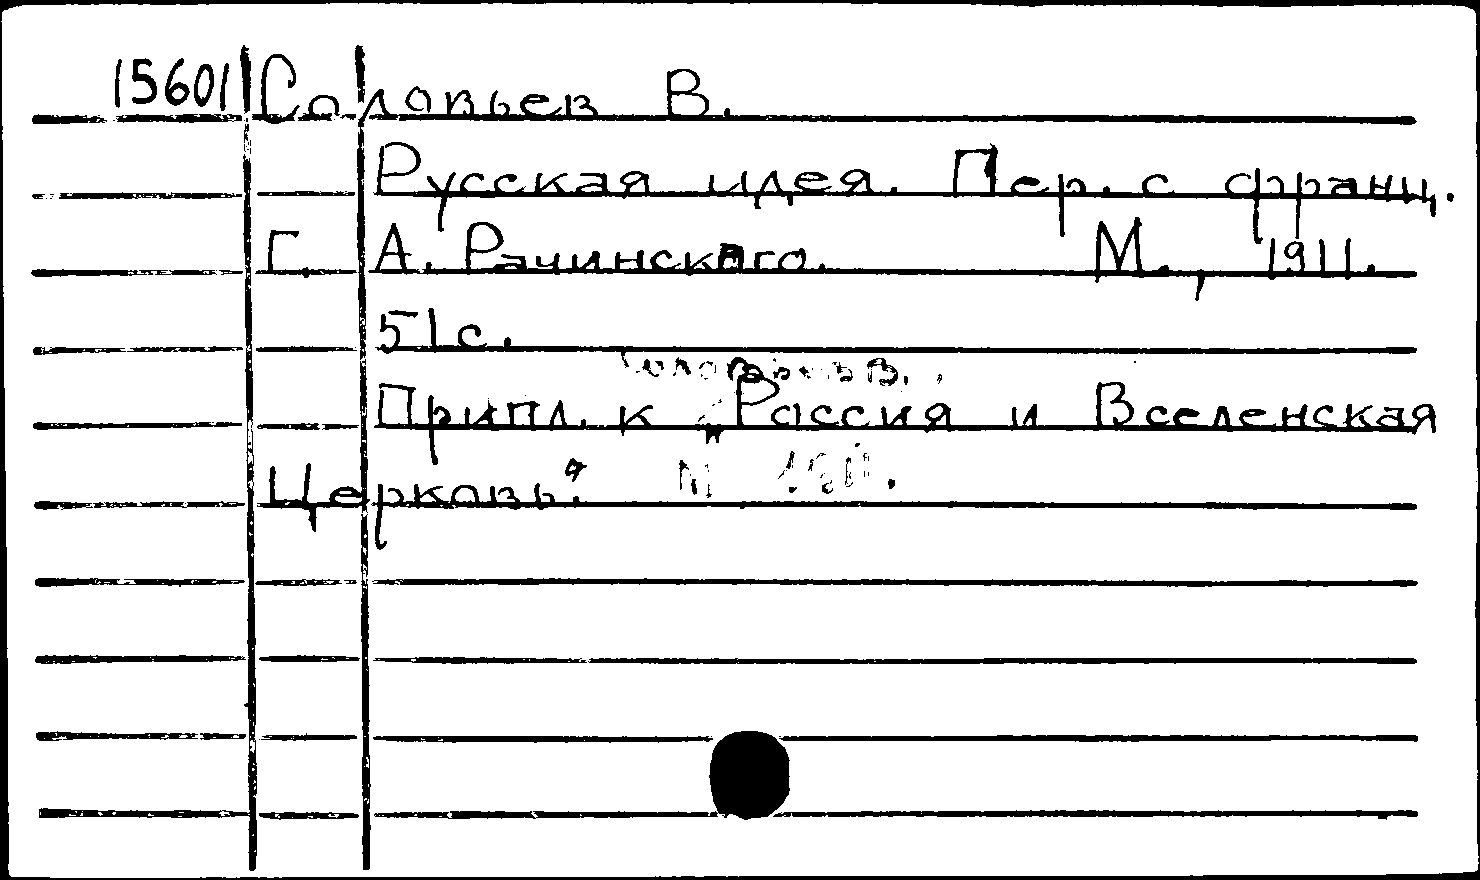 15601 Соловьев В.
Русская идея. Пер. с франц.
Г. А. Рачинского. М., 1911.
51с.
Соловьев В.
Припл. к „Россия и Вселенская
Церковь“. М 1911.